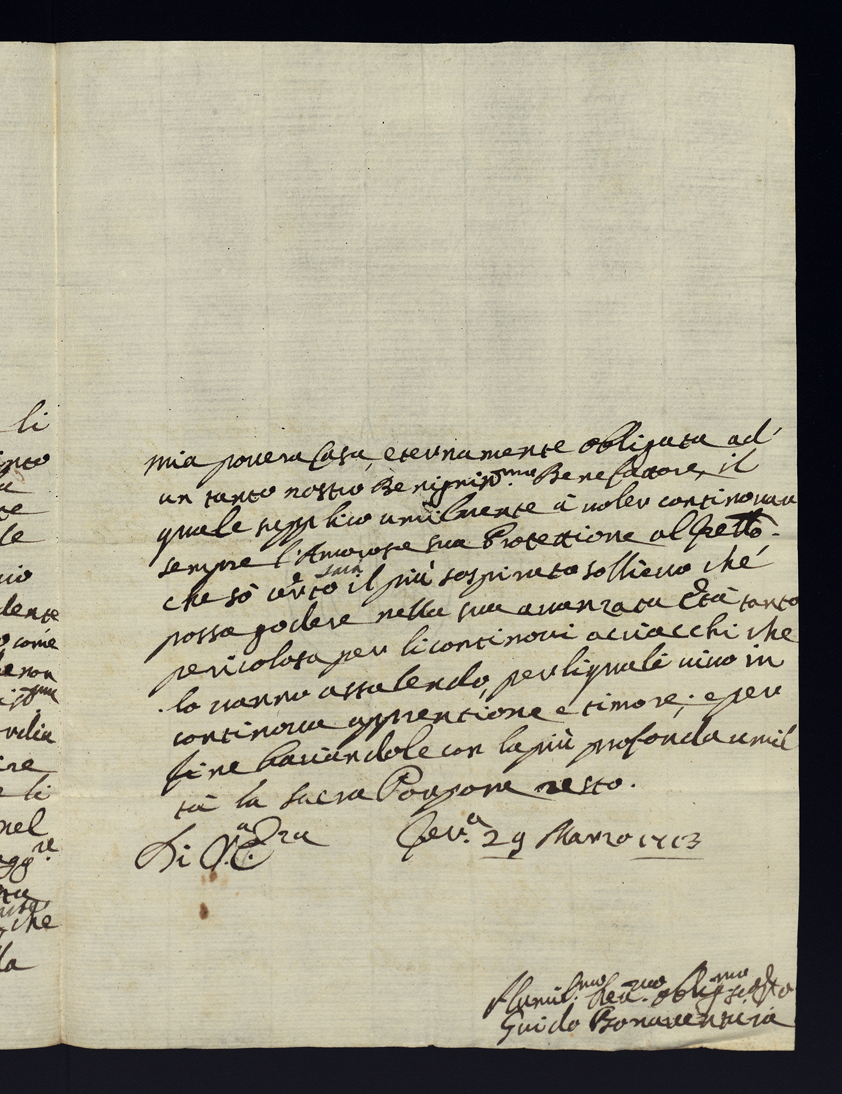 li
mia povera Casa, eternamente obligata ad
un tanto nostro Benigniss.mo Benefatore, il
quale supplico umilmente à voler continovar
sempre l'Amorosa sua Protettione al
che sò certo sarà il più sospirato sollievo che
possa godere nella sua avanzata Età tanto
pericolosa per li continovi acciacchi che
lo vanno assalendo, per li quali vivo in
continova apprentione e timore; e per
fine baciandole con la più profonda umil
tà la sacra Porpora resto.
Di V.a E.za
29 Marzo 1713
Humil.mo Dev.mo Oblig.mo
Guido Bonaventura
dente
come
non
che
la